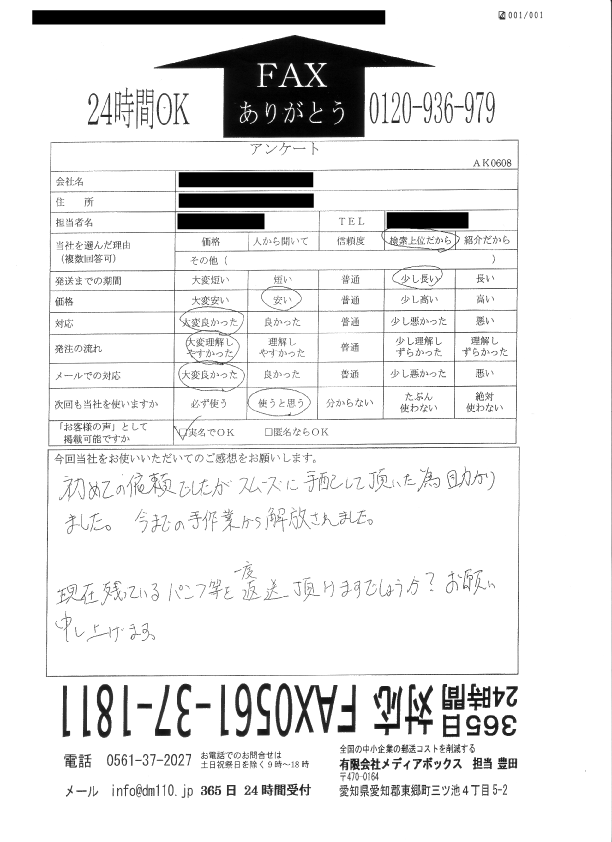 001/001
FAX
ありがとう
24時間OK
0120-936-979
アンケート
AK0608
会社名
住 所
担当者名 TEL
当社を選んだ理由 (複数回答可) 価格 人から聞いて 信頼度 検索上位だから 紹介だから
その他 ( )
発送までの期間 大変短い 短い 普通 少し長い 長い
価格 大変安い 安い 普通 少し高い 高い
対応 大変良かった 良かった 普通 少し悪かった 悪い
発注の流れ 大変理解しやすかった 理解しやすかった 普通 少し理解しずらかった 理解しずらかった
メールでの対応 大変良かった 良かった 普通 少し悪かった 悪い
次回も当社を使いますか 必ず使う 使うと思う 分からない たぶん使わない 絶対使わない
「お客様の声」として掲載可能ですか □実名でOK □匿名ならOK
今回当社をお使いいただいてのご感想をお願いします。
初めての依頼でしたがスムーズに手配して頂いた為助かり
ました。 今までの手作業から解放されました。
現在残っているパンフ等を一度返送頂けますでしょうか?お願い
申し上げます。
365日 24時間 対応 FAX0561-37-1811
電話 0561-37-2027 お電話でのお問合せは 土日祝祭日を除く9時~18時
メール info@dm110.jp 365日 24時間受付
全国の中小企業の郵送コストを削減する
有限会社メディアボックス 担当 豊田
〒470-0164
愛知県愛知郡東郷町三ツ池4丁目5-2